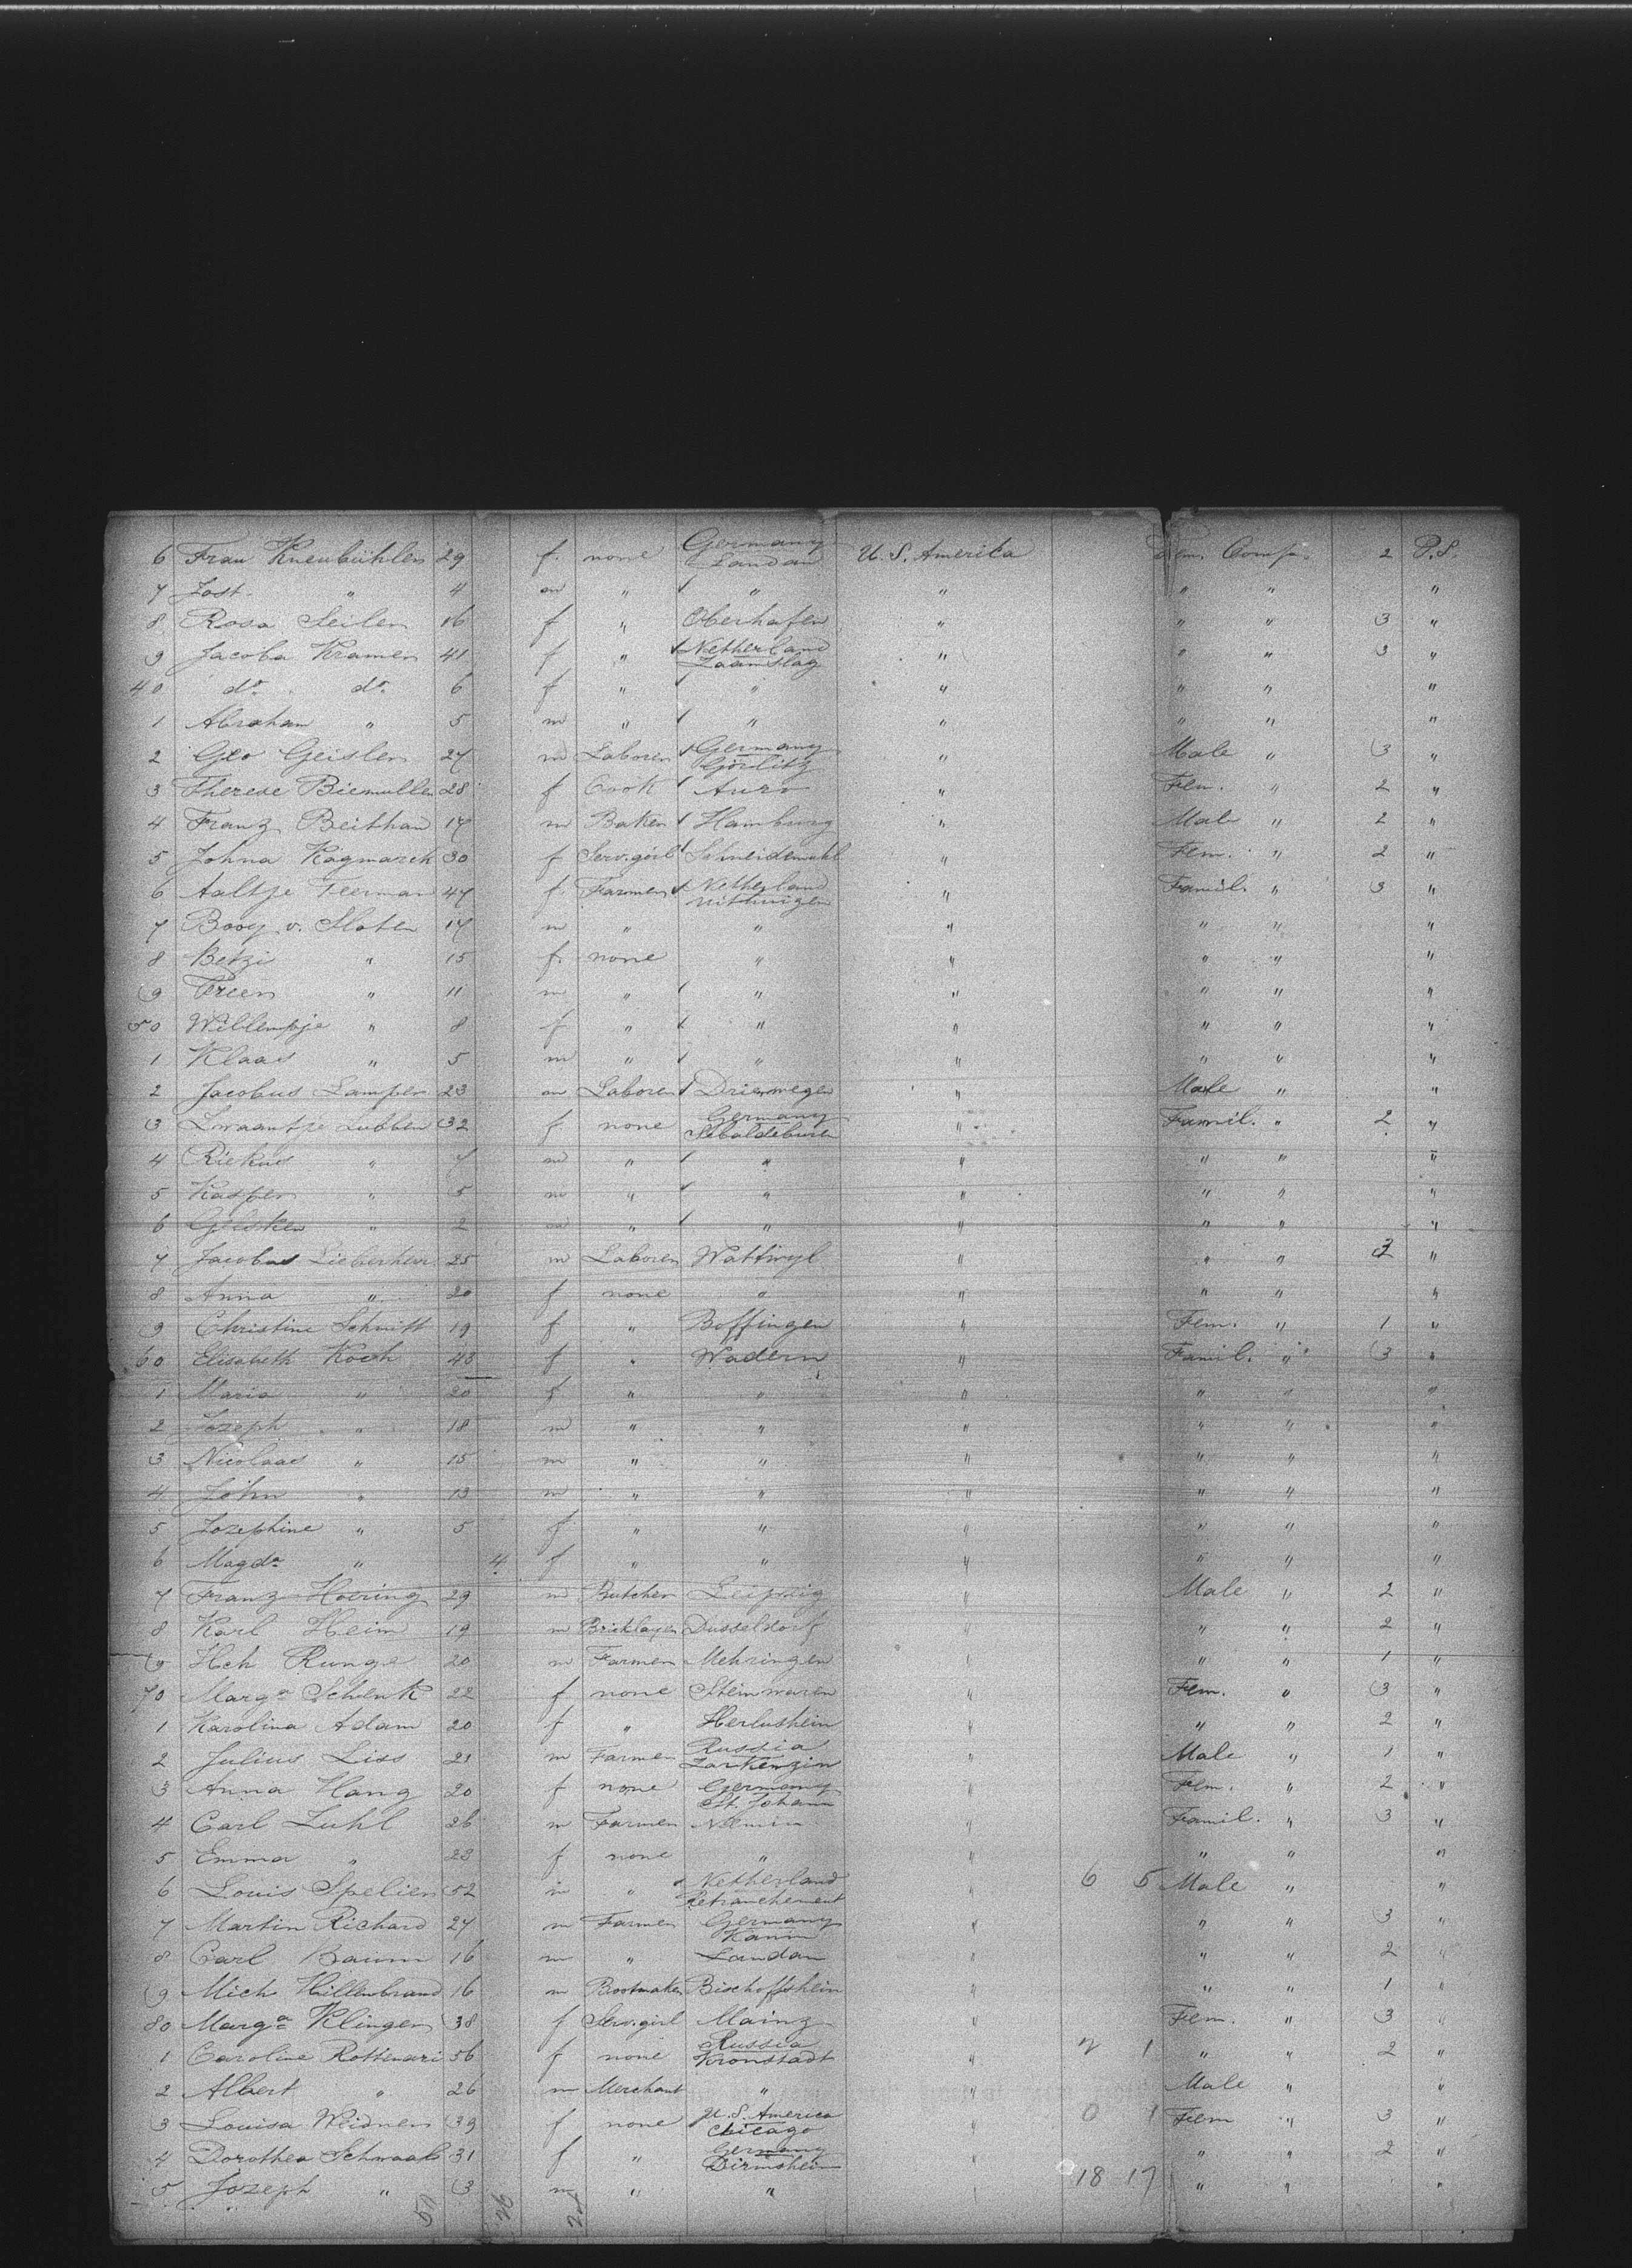 6 Frau Kneubühler 29 f. none Germany Landau U. S. America Fem. Comp. 2 P.S.
7 Jost " 4 m " " " " " "
8 Rosa Seiler 16 f " Oberhafen " " " 3 "
9 Jacoba Kramer 41 f " Netherland Zaamslag " " " 3 "
40 do. do. 6 f " " " " " "
1 Abraham " 5 m " " " " " "
2 Geo Geisler 27 m Laborer Germany Görlitz " Male " 3 "
3 Therese Biemuller 28 f Cook " Fem. " 2 "
4 Franz Beithan 17 m Baker Hamburg " Male " 2 "
5 Johna Kagmarek 30 f Serv.girl Schneidemuhl " Fem. " 2 "
6 Aaltje Feerman 47 f. Farmer Netherland " Famil. " 3 "
7 Booy v. Sloten 17 m " " " " " "
8 Betzi " 15 f. none " " " " "
9 " 11 m " " " " " "
50 Willempje " 8 f " " " " " "
1 Klaas " 5 m " " " " " "
2 Jacobus Lamper 23 m Laborer Driewegen " Male " "
3 Lubben 32 f none Germany Sebaldeburen " Famil. " 2 "
4 Riekus " 7 m " " " " " "
5 Kasper " 5 m " " " " " "
6 " 2 m " " " " " "
7 Jacobus Lieberherr 25 m Laborer Wattwyl " " " 3 "
8 Anna " 20 f none " " " " "
9 Christine Schmitt 19 f " Boffingen " Fem. " 1 "
60 Elisabeth Koch 43 f " Wadern " Famil. " 3 "
1 Maria " 20 f " " " " " "
2 Jozeph " 18 m " " " " " "
3 Nicolaas " 15 m " " " " " "
4 John " 13 m " " " " " "
5 Jozephine " 5 f " " " " " "
6 Magda " 4 f " " " " " "
7 Franz Hoering 29 m Butcher Leipzig " Male " 2 "
8 Karl Heim 19 m Bricklayer Dusseldorf " " " 2 "
9 Hch Runge 20 m Farmer Mehringen " " " 1 "
70 Marga Schenk 22 f none Steinwaren " Fem. " 3 "
1 Karolina Adam 20 f " Herlusheim " " " 2 "
2 Julius Liss 21 m Farmer Russia " Male " 1 "
3 Anna Hang 20 f none Germany St. Johann " Fem. " 2 "
4 Carl Luhl 26 m Farmer " Famil. " 3 "
5 Emma " 23 f none " " " " "
6 Louis Spelier 52 m " Netherland Retranchement " 6 5 Male " "
7 Martin Richard 27 m Farmer Germany Kamin " " " 3 "
8 Carl Baum 16 m " Landau " " " 2 "
9 Mich Hillenbrand 16 m Bootmaker Bischoffsheim " " " 1 "
80 Marga Klinger 38 f Serv.girl Mainz " Fem. " 3 "
1 Caroline Rottenari 56 f none Russia Kronstadt " 2 1 " " 2 "
2 Albert " 26 m Merchant " " Male " "
3 Louisa Weidner 39 f none U. S. America Chicago " 0 1 Fem " 3 "
4 Dorothea Schwaab 31 f " Germany Dirmsheim " " " 2 "
5 Jozeph " 3 m " " " 18 17 " " "
50 26 24